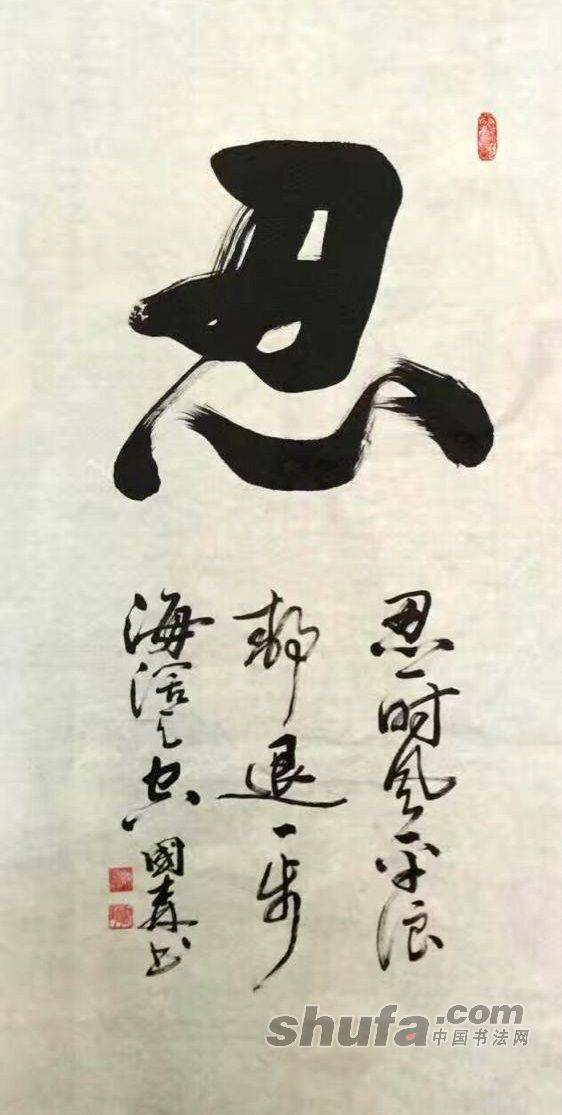 忍
忍一时风平浪
静退一步
海阔天空
國森书
shufa.com
中国书法网